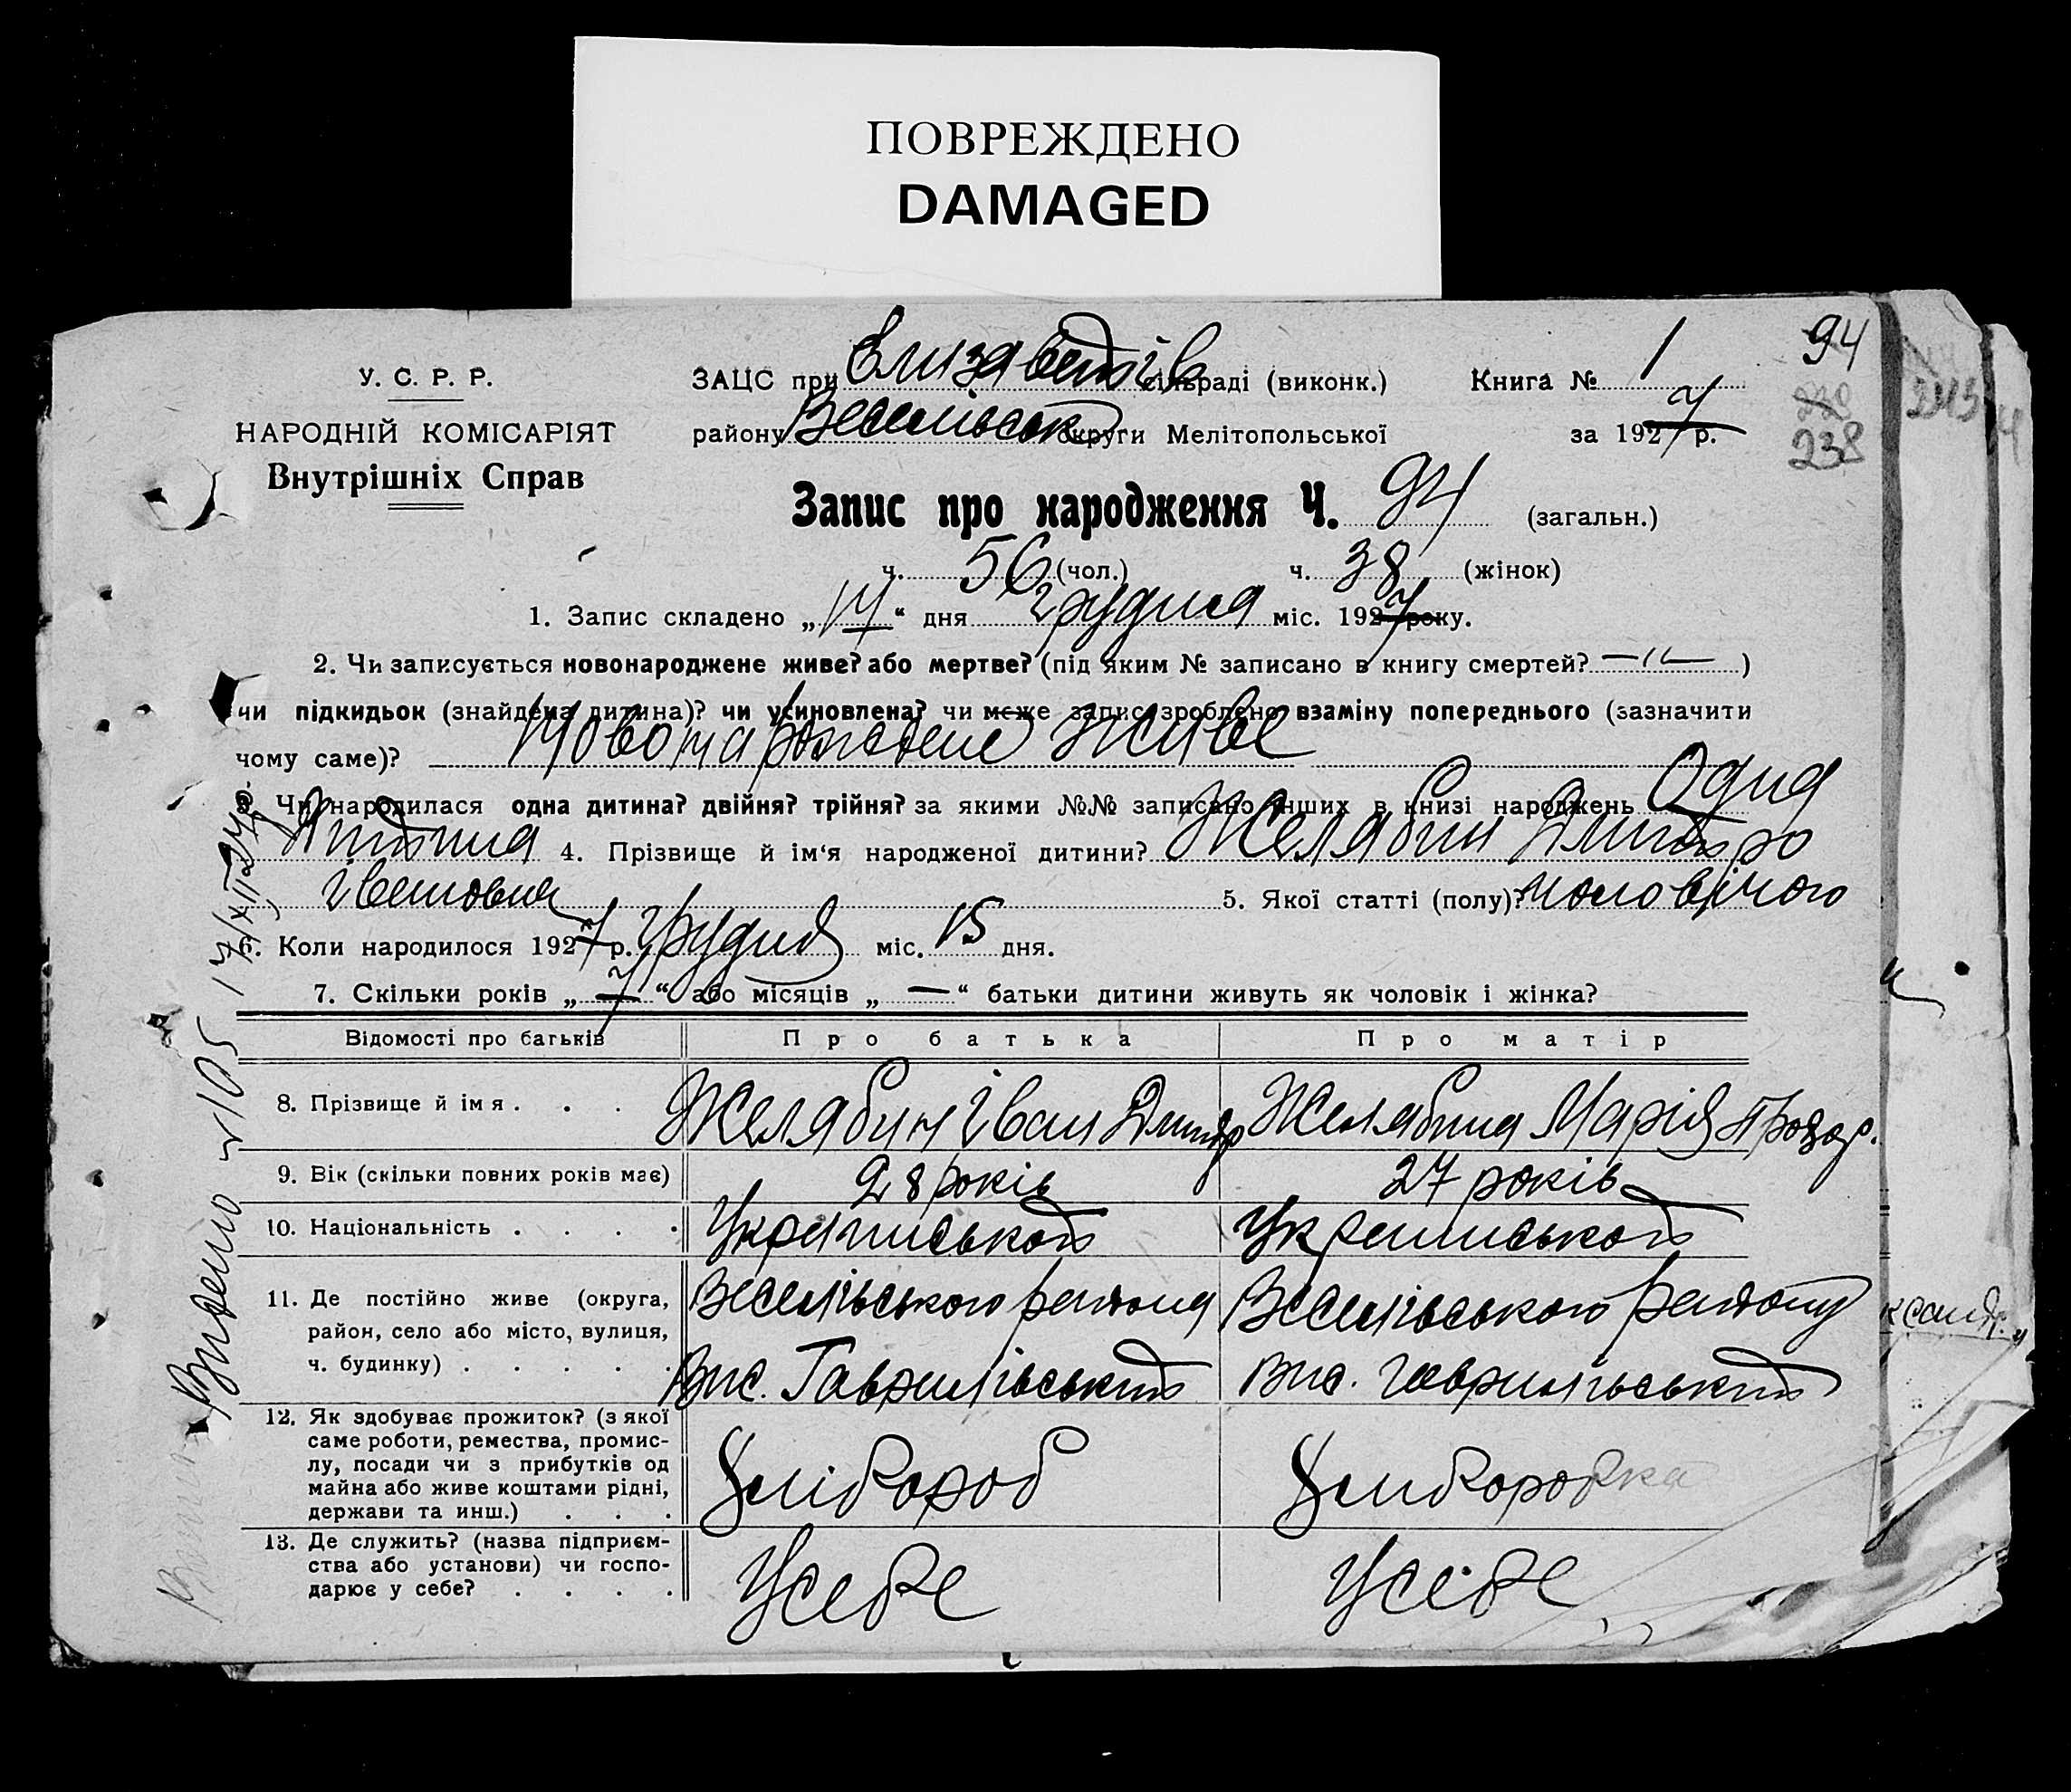 ПОВРЕЖДЕНО
DAMAGED
94
У. С. Р. Р.
НАРОДНІЙ КОМІСАРІЯТ
Внутрішніх Справ
ЗАЦС при Єлизаветів сільраді (виконк.) Книга № 1
району Веселівськ округи Мелітопольської за 1927 р.
238
243
Запис про народження Ч. 94 (загальн.)
ч. 56 (чол.) ч. 38 (жінок)
1. Запис складено „ “ дня грудня міс. 1927 року.
2. Чи записується новонароджене живе? або мертве? (під яким № записано в книгу смертей? —"— )
чи підкидьок (знайдена дитина)? чи усиновлена? чи може запис зроблено взаміну попереднього (зазначити
чому саме)? Новонарождене живе
3. Чи народилася одна дитина? двійня? трійня? за якими №№ записано інших в книзі народжень Одна
дитина 4. Прізвище й ім'я народженої дитини? Желябин Дмитро
Іванович 5. Якої статті (полу)? чоловічого
6. Коли народилося 1927 р. Грудня міс. 15 дня.
7. Скільки років „ 7 “ або місяців „ — “ батьки дитини живуть як чоловік і жінка?
Відомості про батьків Про батька Про матір
8. Прізвище й імя . . . Желябин Іван Дмитр Желябина Марія
9. Вік (скільки повних років має) 28 років 27 років
10. Національність . . . . Українськой Українськой
11. Де постійно живе (округа, Веселівського района Веселівського району
район, село або місто, вулиця,
ч. будинку) . . . . . Вис. Гаврилівський Вис. Гаврилівський
12. Як здобуває прожиток? (з якої
саме роботи, ремества, промис-
лу, посади чи з прибутків од
майна або живе коштами рідні,
держави та инш.) . . . Хлібороб Хлиборобка
13. Де служить? (назва підприєм-
ства або установи) чи госпо-
дарює у себе? . . . . Усебе Усебе
Видано 105 17/XII 27 р.